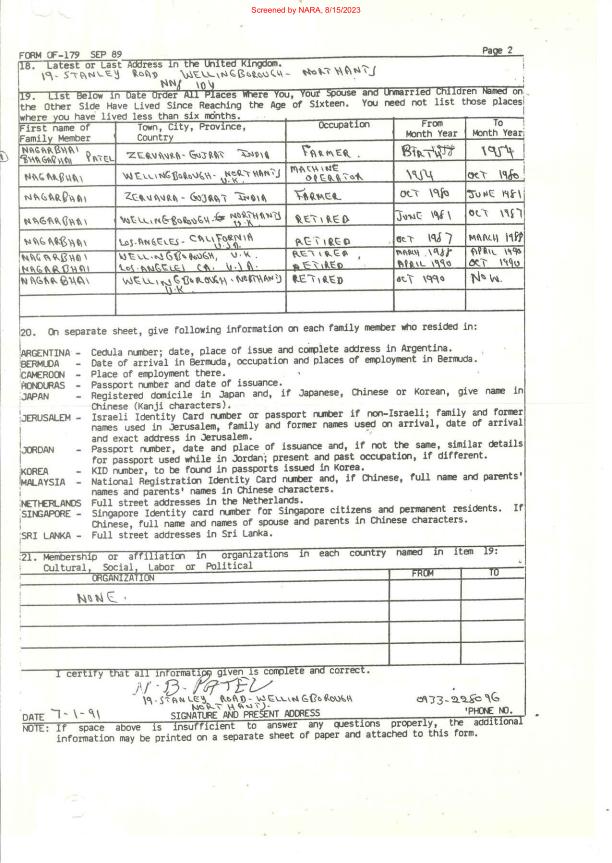 Screened by NARA, 8/15/2023
FORM OF-179 SEP 89
Page 2
18. Latest or Last Address in the United Kingdom.
19-STANLEY ROAD WELLINGBOROUGH- NORTHANTS
NN8 1DY
19. List Below in Date Order All Places Where You, Your Spouse and Unmarried Children Named on
the Other Side Have Lived Since Reaching the Age of Sixteen. You need not list those places
where you have lived less than six months.
First name of Family Member | Town, City, Province, Country | Occupation | From Month Year | To Month Year
NAGARBHAI BHAGABHAI PATEL ZERVAVRA-GUJRAT INDIA FARMER. BIRTH 1954
NAGARBHAI WELLINGBOROUGH- NORTHANTS U.K. MACHINE OPERATOR 1954 OCT 1980
NAGARBHAI ZERVAVRA-GUJRAT INDIA FARMER OCT 1980 JUNE 1981
NAGARBHAI WELLINGBOROUGH- NORTHANTS U.K RETIRED JUNE 1981 OCT 1987
NAGARBHAI LOS-ANGELES-CALIFORNIA U.S.A. RETIRED OCT 1987 MARCH 1988
NAGARBHAI WELLINGBOROUGH, U.K. RETIRED, MARCH 1988 APRIL 1990
NAGARBHAI LOS-ANGELES CA. U.S.A. RETIRED APRIL 1990 OCT 1990
NAGARBHAI WELLINGBOROUGH-NORTHANTS U.K RETIRED OCT 1990 NOW.
20. On separate sheet, give following information on each family member who resided in:
ARGENTINA - Cedula number; date, place of issue and complete address in Argentina.
BERMUDA - Date of arrival in Bermuda, occupation and places of employment in Bermuda.
CAMEROON - Place of employment there.
HONDURAS - Passport number and date of issuance.
JAPAN - Registered domicile in Japan and, if Japanese, Chinese or Korean, give name in
Chinese (Kanji characters).
JERUSALEM - Israeli Identity Card number or passport number if non-Israeli; family and former
names used in Jerusalem, family and former names used on arrival, date of arrival
and exact address in Jerusalem.
JORDAN - Passport number, date and place of issuance and, if not the same, similar details
for passport used while in Jordan; present and past occupation, if different.
KOREA - KID number, to be found in passports issued in Korea.
MALAYSIA - National Registration Identity Card number and, if Chinese, full name and parents'
names and parents' names in Chinese characters.
NETHERLANDS Full street addresses in the Netherlands.
SINGAPORE - Singapore Identity card number for Singapore citizens and permanent residents. If
Chinese, full name and names of spouse and parents in Chinese characters.
SRI LANKA - Full street addresses in Sri Lanka.
21. Membership or affiliation in organizations in each country named in item 19:
Cultural, Social, Labor or Political
ORGANIZATION FROM TO
NONE.
I certify that all information given is complete and correct.
N-B-PATEL
19-STANLEY ROAD-WELLINGBOROUGH 0933-228096
NORTHANTS.
DATE 7-1-91 SIGNATURE AND PRESENT ADDRESS 'PHONE NO.
NOTE: If space above is insufficient to answer any questions properly, the additional
information may be printed on a separate sheet of paper and attached to this form.